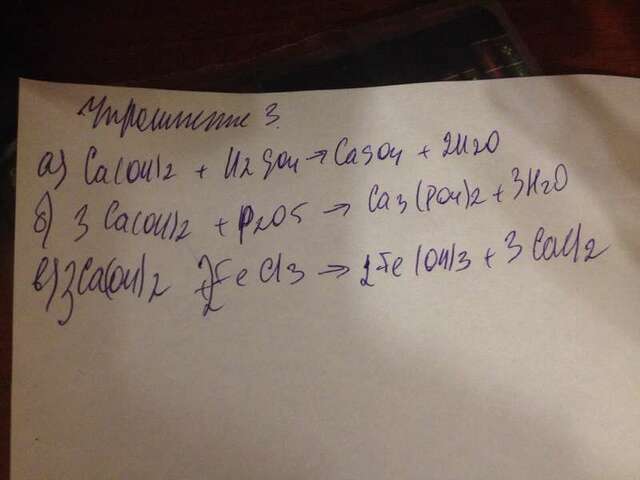 Упражнение 3.
а) Ca(OH)2 + H2SO4 → CaSO4 + 2H2O
б) 3Ca(OH)2 + P2O5 → Ca3(PO4)2 + 3H2O
в) 3Ca(OH)2 + 2FeCl3 → 2Fe(OH)3 + 3CaCl2